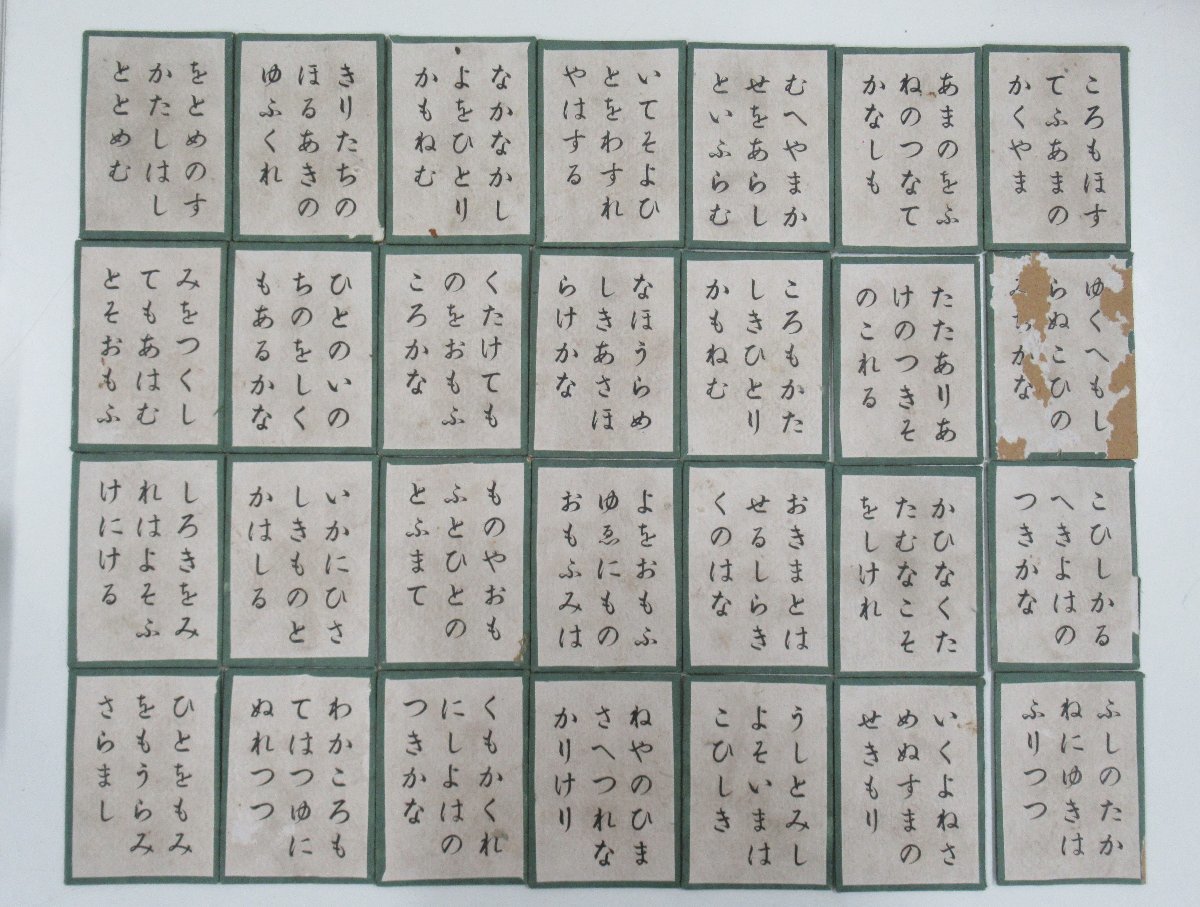 ころもほす
てふあまの
かくやま
あまのをふ
ねのつなて
かなしも
むへやまか
せをあらし
といふらむ
いてそよひ
とをわすれ
やはする
なかなかし
よをひとり
かもねむ
きりたちの
ほるあきの
ゆふくれ
をとめのす
かたしはし
ととめむ
ゆくへもし
らぬこひの
みちかな
たたありあ
けのつきそ
のこれる
ころもかた
しきひとり
かもねむ
なほうらめ
しきあさほ
らけかな
くたけても
のをおもふ
ころかな
ひとのいの
ちのをしく
もあるかな
みをつくし
てもあはむ
とそおもふ
こひしかる
へきよはの
つきかな
かひなくた
たむなこそ
をしけれ
おきまとは
せるしらき
くのはな
よをおもふ
ゆゑにもの
おもふみは
ものやおも
ふとひとの
とふまて
いかにひさ
しきものと
かはしる
しろきをみ
れはよそふ
けにける
ふしのたか
ねにゆきは
ふりつつ
いくよねさ
めぬすまの
せきもり
うしとみし
よそいまは
こひしき
ねやのひま
さへつれな
かりけり
くもかくれ
にしよはの
つきかな
わかころも
てはつゆに
ぬれつつ
ひとをもみ
をもうらみ
さらまし